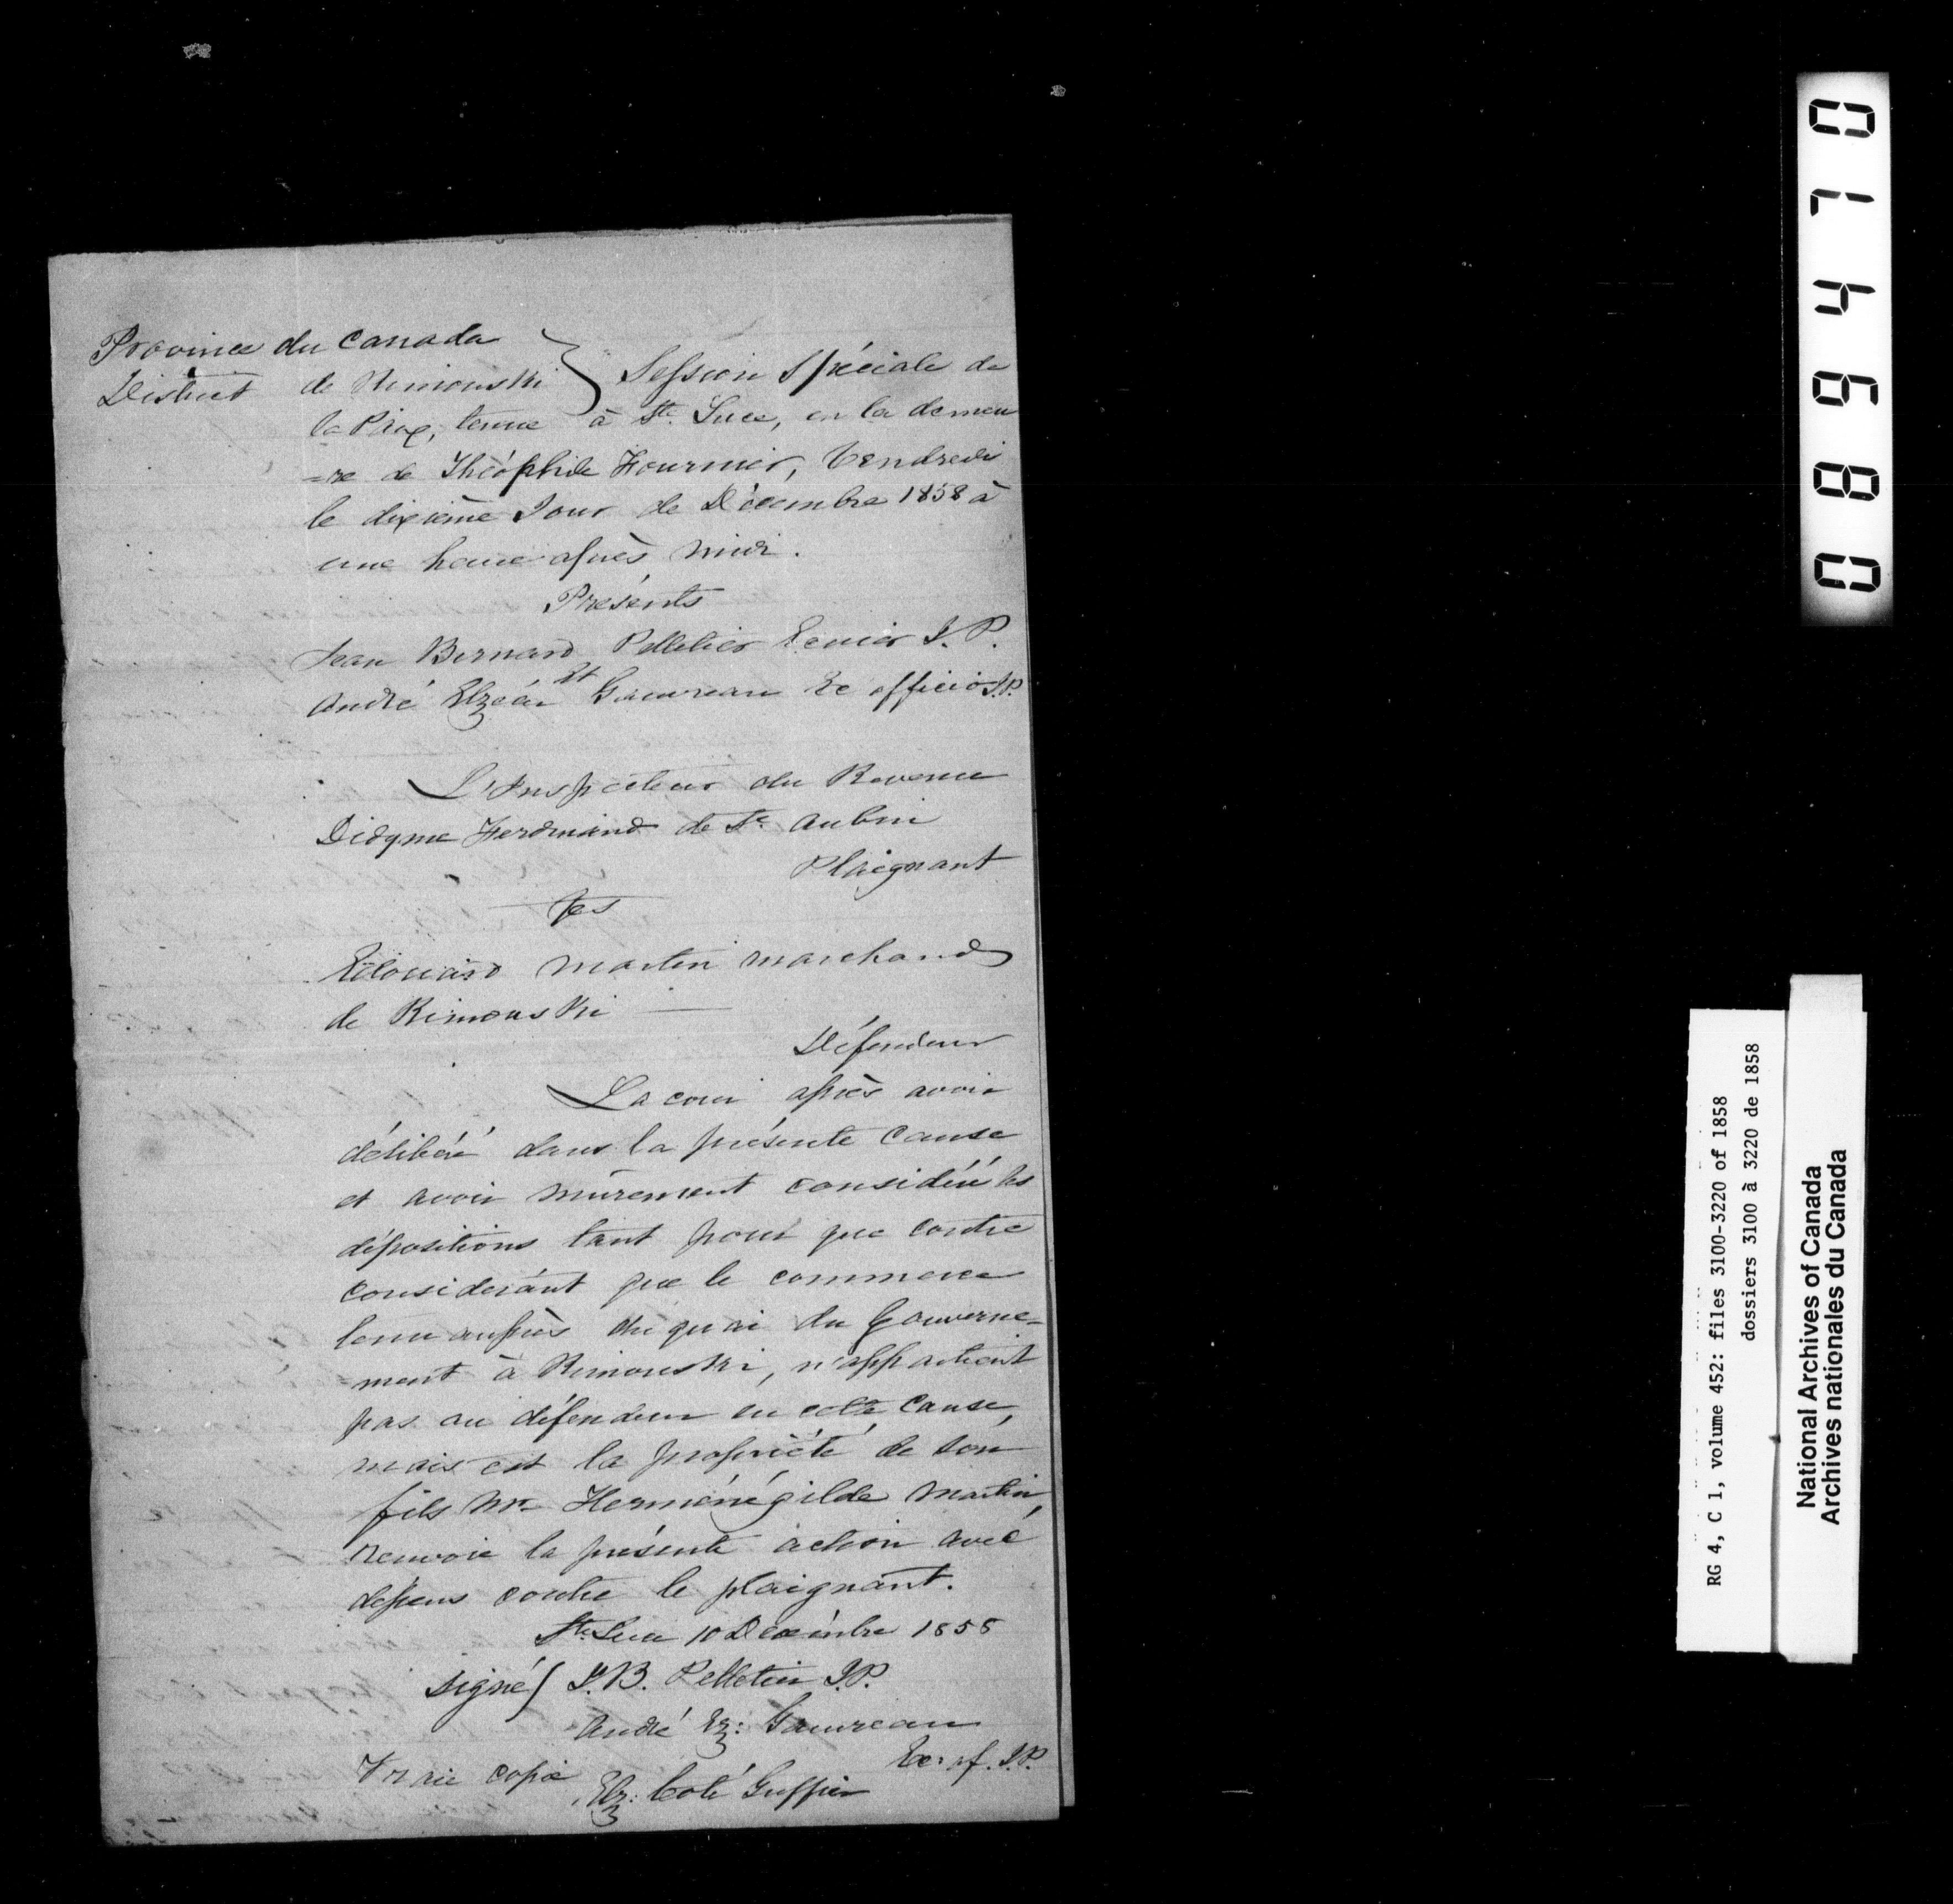 Province du Canada
District de Rimouski } Session Spéciale de
la Paix, tenue à Ste. Luce, en la demeu
=re de Théophile Fournier, Vendredi
le dixième Jour de Décembre 1858 à
une heure après Midi.
Présents
Jean Bernard Pelletier Ecuier J. P.
Et
André Elzéar Gauvreau Ex officio J.P.
L'Inspecteur du Revenu
Didyme Ferdinand de St. Aubin
Plaignant
vs
Edouard Martin Marchand
de Rimouski —
Défendeur
La cour après avoir
délibéré dans la présente cause
et avoir mûrement considéré les
dépositions tant pour que contre
considerant que le commerce
tenu auprès du quai du Gouverne-
=ment à Rimouski, n'appartient
pas au défendeur en cette cause,
mais est la propriété de son
fils Mr. Herménégilde Martin,
renvoie la présente action avec
depens contre le plaignant.
Ste. Luce 10 Decembre 1858
signé/ J. B. Pelletier J.P.
André Elz: Gauvreau
Ex: of. J.P.
Vraie copie
Elz: Coté Greffier
0894710
RG 4, C 1, volume 452: files 3100-3220 of 1858
dossiers 3100 à 3220 de 1858
National Archives of Canada
Archives nationales du Canada